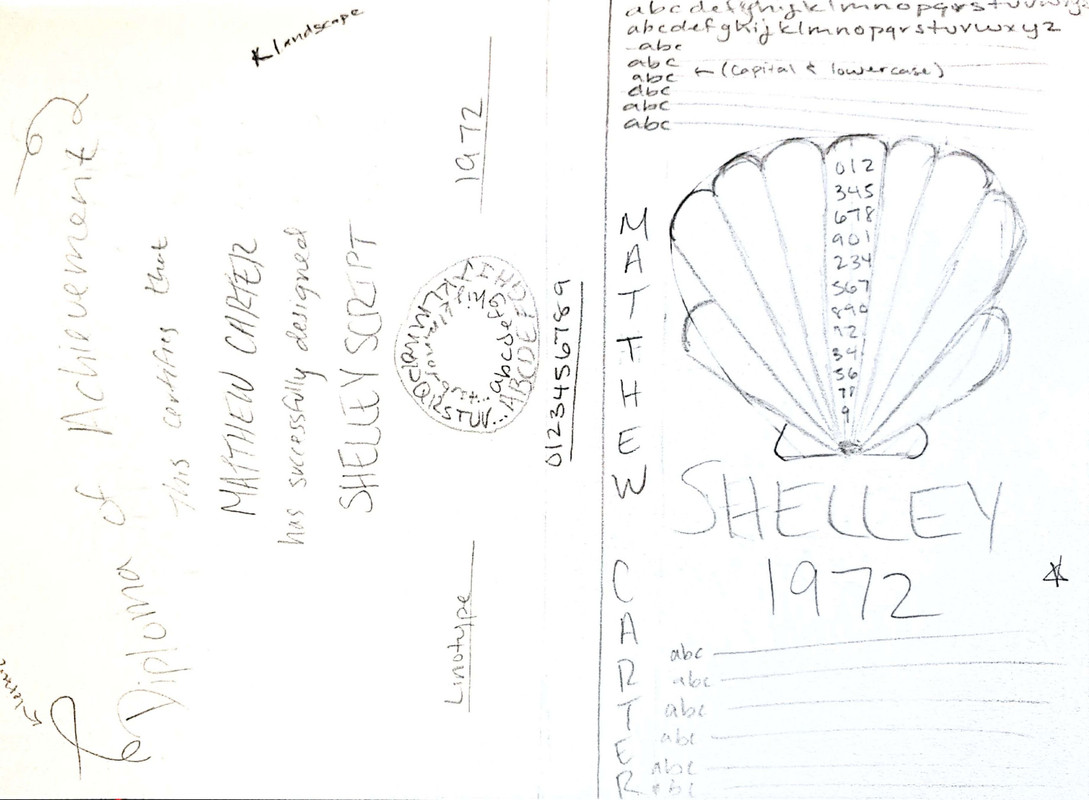 landscape
Diploma of Achievement
This certifies that
MATTHEW CARTER
has successfully designed
SHELLEY SCRIPT
Linotype
1972
0123456789
abcdefghijklmnopqrstuvwxyz
abcdefghijklmnopqrstuvwxyz
abc
abc
abc ← (capital & lowercase)
abc
abc
abc
MATTHEW CARTER
012
345
678
901
234
567
890
12
34
56
78
9
SHELLEY
1972
abc
abc
abc
abc
abc
abc